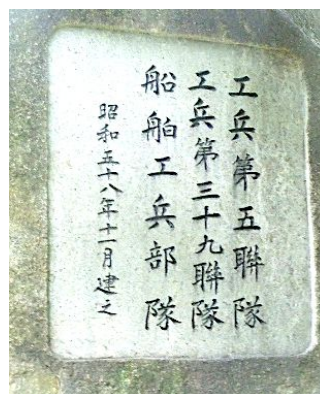 工兵第五聯隊
工兵第三十九聯隊
船舶工兵部隊
昭和五十八年十一月建之